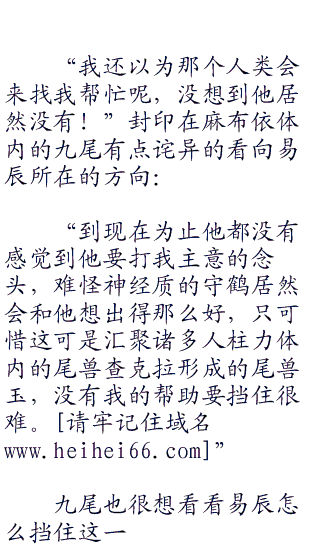 “我还以为那个人类会
来找我帮忙呢，没想到他居
然没有！”封印在麻布依体
内的九尾有点诧异的看向易
辰所在的方向：
“到现在为止他都没有
感觉到他要打我主意的念
头，难怪神经质的守鹤居然
会和他想出得那么好，只可
惜这可是汇聚诸多人柱力体
内的尾兽查克拉形成的尾兽
玉，没有我的帮助要挡住很
难。[请牢记住域名
www.heihei66.com]”
九尾也很想看看易辰怎
么挡住这一